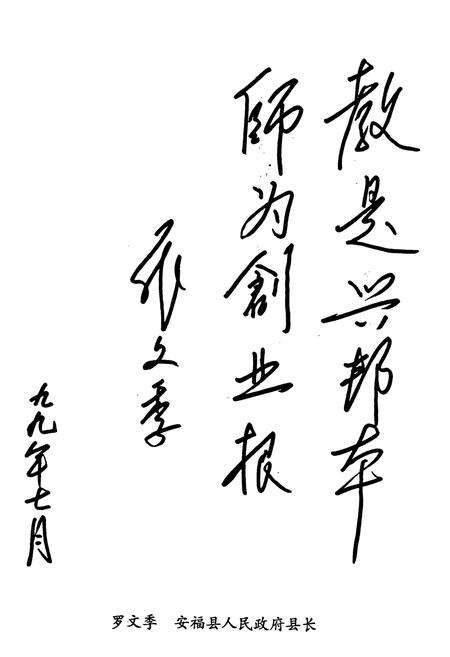 教是兴邦本
師为創业根
罗文季
九九年七月
罗文季 安福县人民政府县长